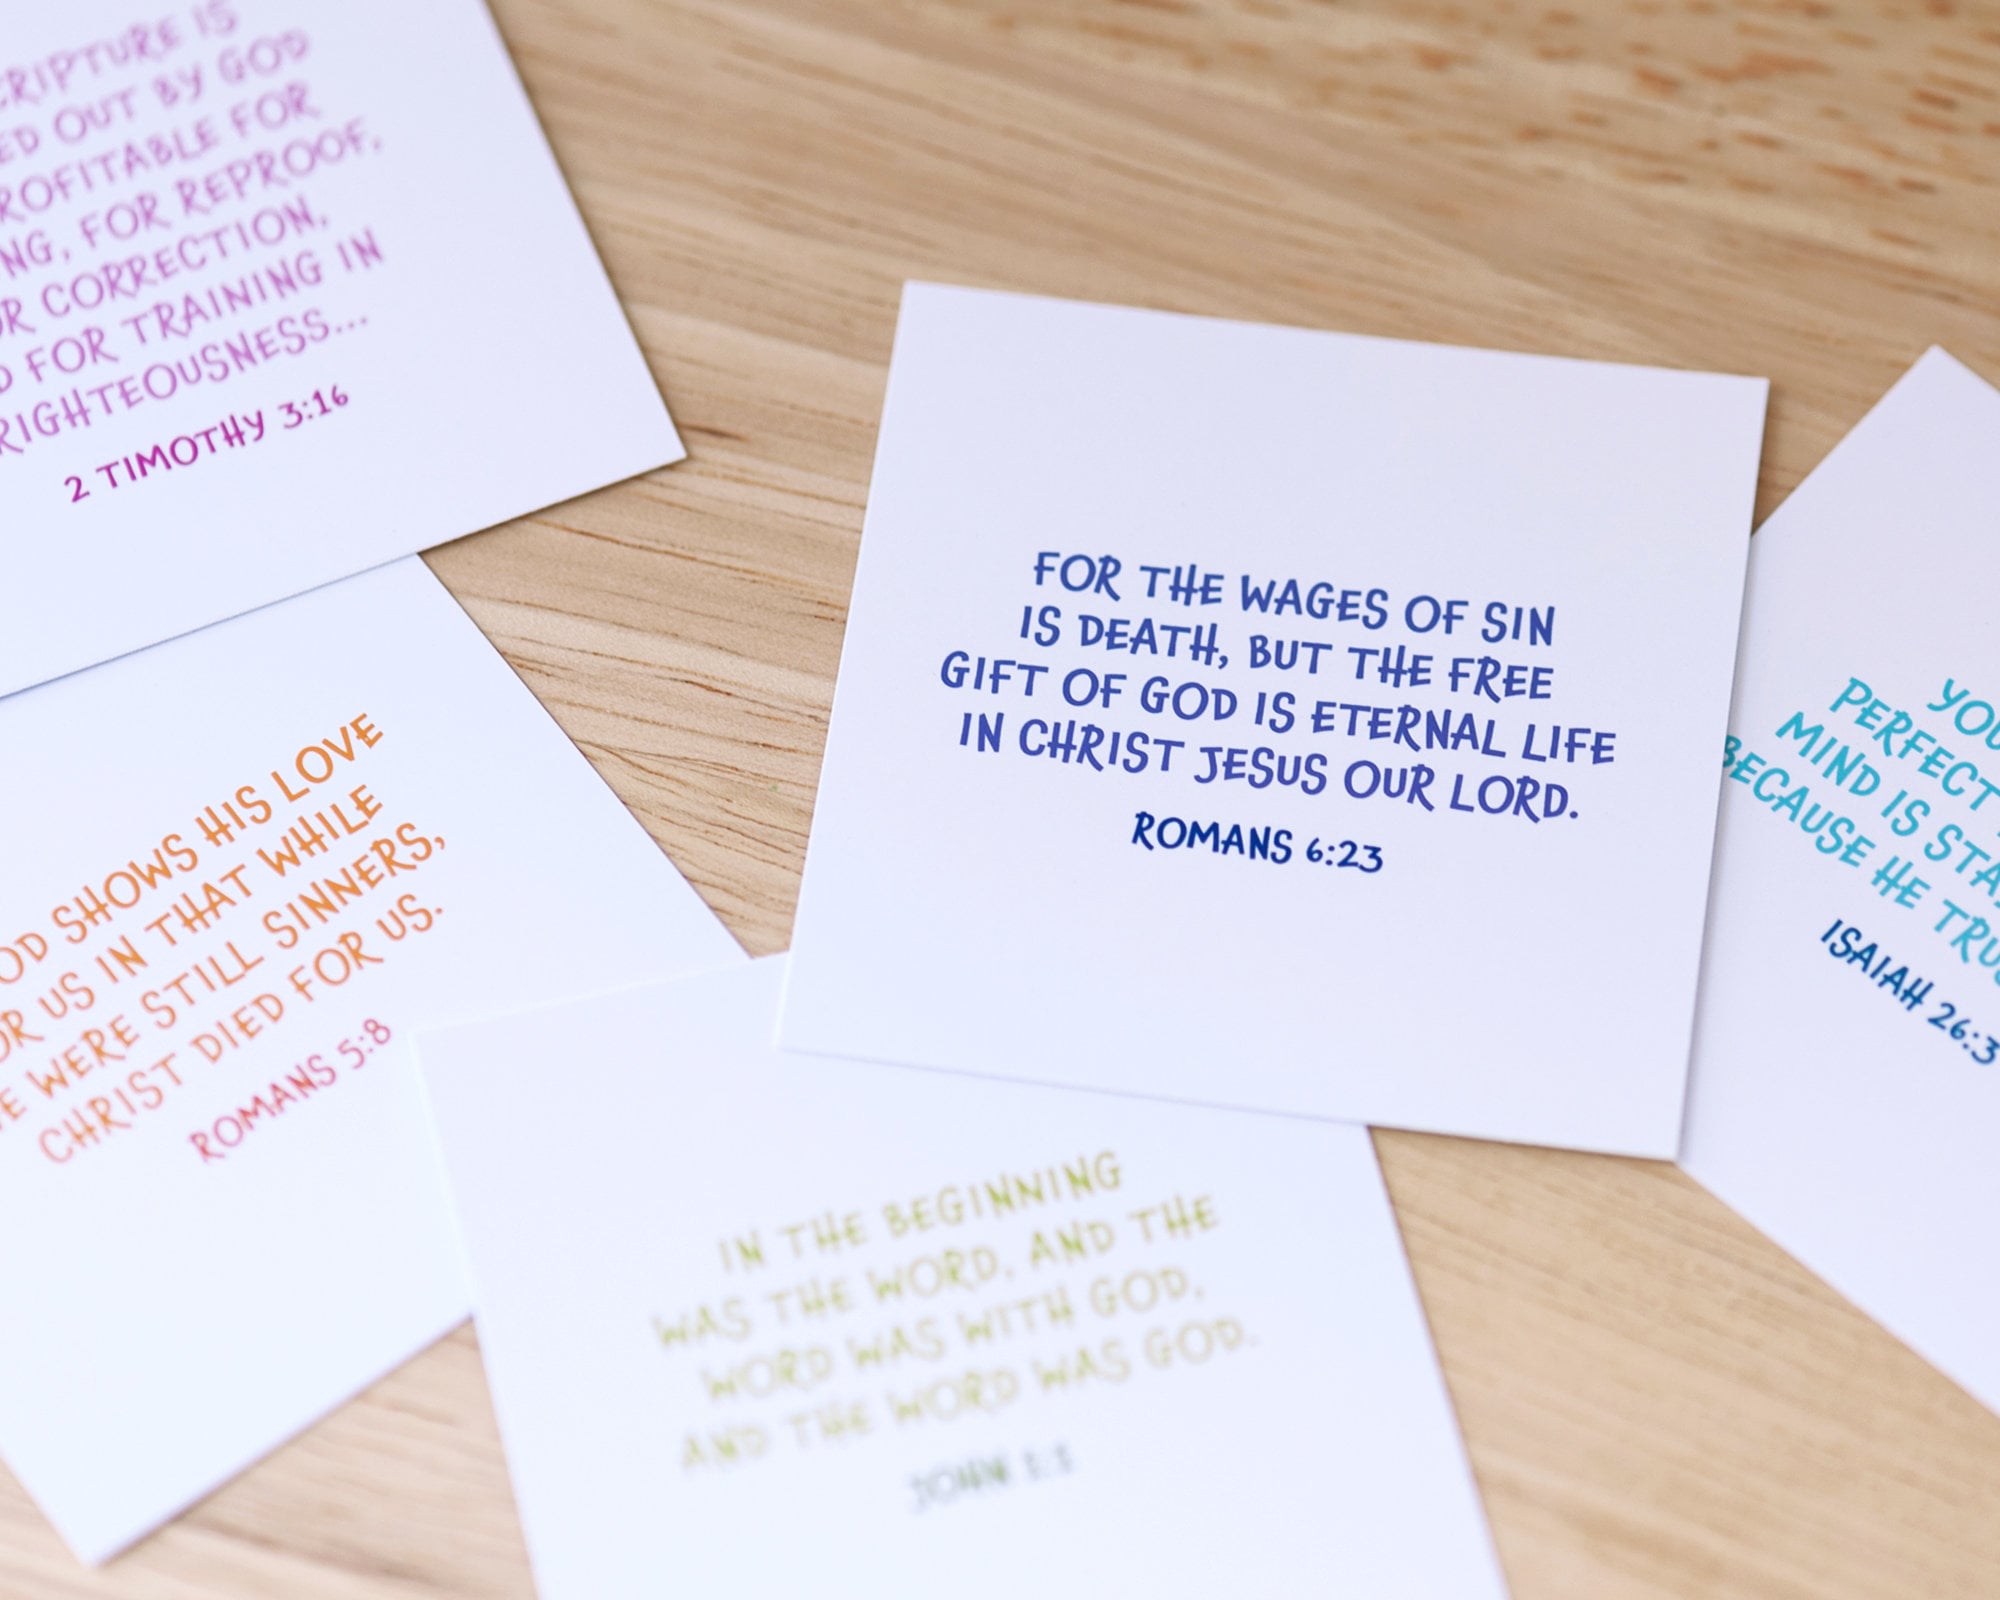 CRIPTURE IS
ED OUT BY GOD
ROFITABLE FOR
NG, FOR REPROOF,
OR CORRECTION,
D FOR TRAINING IN
RIGHTEOUSNESS...
2 TIMOTHY 3:16
OD SHOWS HIS LOVE
OR US IN THAT WHILE
E WERE STILL SINNERS,
CHRIST DIED FOR US.
ROMANS 5:8
FOR THE WAGES OF SIN
IS DEATH, BUT THE FREE
GIFT OF GOD IS ETERNAL LIFE
IN CHRIST JESUS OUR LORD.
ROMANS 6:23
IN THE BEGINNING
WAS THE WORD, AND THE
WORD WAS WITH GOD,
AND THE WORD WAS GOD.
JOHN 1:1
YOU
PERFECT
MIND IS STA
BECAUSE HE TRUS
ISAIAH 26:3